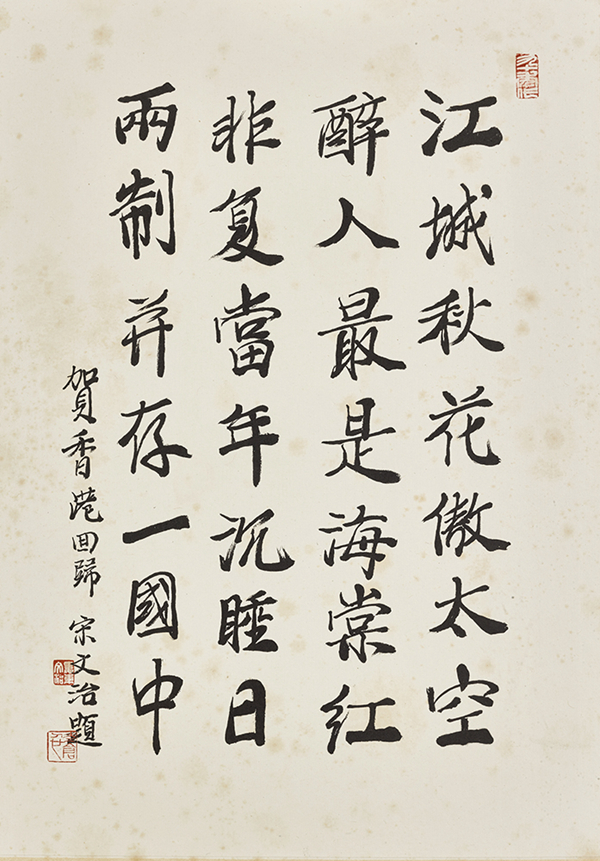 江城秋花傲太空
醉人最是海棠紅
非复當年沉睡日
兩制并存一國中
賀香港回歸 宋文治題